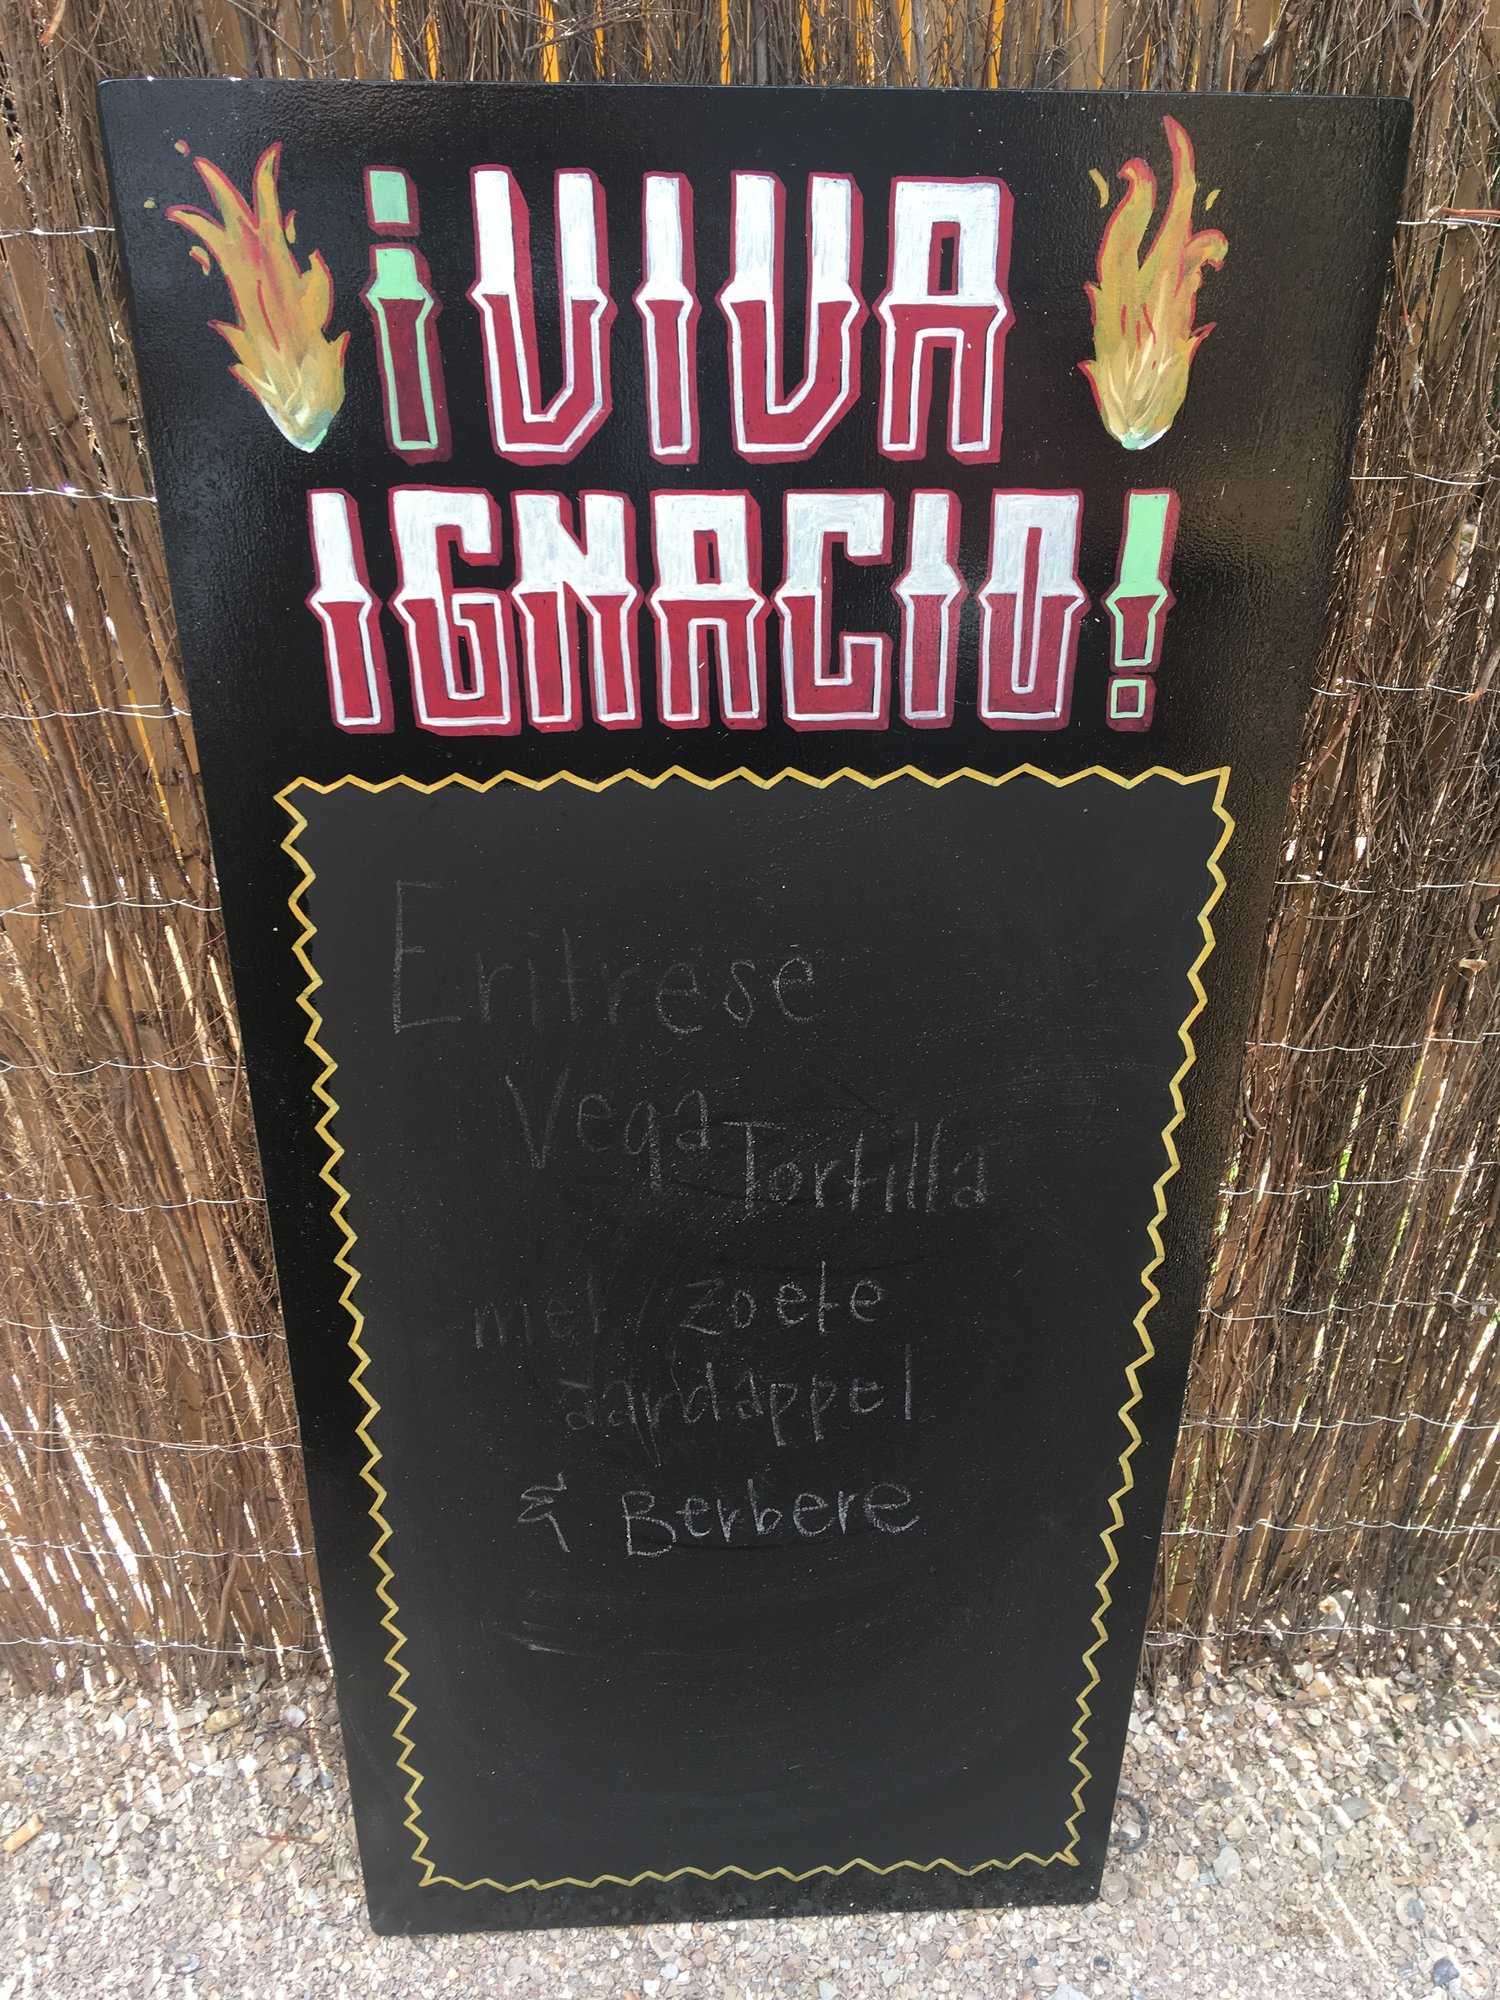 ¡VIVA
IGNACIO!
Eritrese
Vega Tortilla
met zoete
aardappel
& Berbere